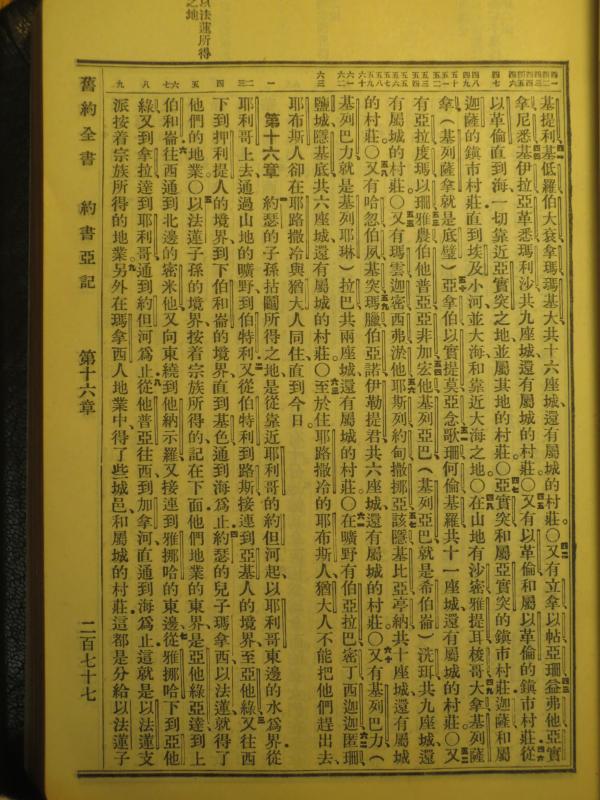 以法蓮所得
之地
基提利基低羅伯大袞拿瑪瑪基大共十六座城還有屬城的村莊。〇又有立拿以帖亞珊益弗他亞實
拿尼悉基伊拉亞革悉瑪利沙共九座城還有屬城的村莊。〇又有以革倫和屬以革倫的鎮市村莊從
以革倫直到海一切靠近亞實突之地並屬其地的村莊。〇亞實突和屬亞實突的鎮市村莊迦薩和屬
迦薩的鎮市村莊直到埃及小河並大海和靠近大海之地。〇在山地有沙密雅提耳梭哥大拿基列薩
拿（基列薩拿就是底璧）亞拿伯以實提莫亞念歌珊何倫基羅共十一座城還有屬城的村莊。〇又
有亞拉度瑪以珊雅農伯他普亞亞非加宏他基列亞巴（基列亞巴就是希伯崙）洗珥共九座城還
有屬城的村莊。〇又有瑪雲迦密西弗淤他耶斯列約甸撒挪亞該隱基比亞亭納共十座城還有屬城
的村莊。〇又有哈忽伯夙基突瑪臘伯亞諾伊勒提君共六座城還有屬城的村莊。〇又有基列巴力（
基列巴力就是基列耶琳）拉巴共兩座城還有屬城的村莊。〇在曠野有伯亞拉巴密丁西迦迦匿珊
鹽城隱基底共六座城還有屬城的村莊。〇至於住耶路撒冷的耶布斯人猶大人不能把他們趕出去、
耶布斯人卻在耶路撒冷與猶大人同住直到今日
第十六章 約瑟的子孫拈鬮所得之地是從靠近耶利哥的約但河起以耶利哥東邊的水為界從
耶利哥上去通過山地的曠野到伯特利又從伯特利到路斯接連到亞基人的境界至亞他綠又往西
下到押利提人的境界到下伯和崙的境界直到基色通到海為止約瑟的兒子瑪拿西以法蓮就得了
他們的地業。〇以法蓮子孫的境界按着宗族所得的記在下面他們地業的東界是亞他綠亞達到上
伯和崙往西通到北邊的密米他又向東繞到他納示羅又接連到雅挪哈的東邊從雅挪哈下到亞他
綠又到拿拉達到耶利哥通到約但河為止從他普亞往西到加拿河直通到海為止這就是以法蓮支
派按着宗族所得的地業另外在瑪拿西人地業中得了些城邑和屬城的村莊這都是分給以法蓮子
舊約全書 約書亞記 第十六章 二百七十七